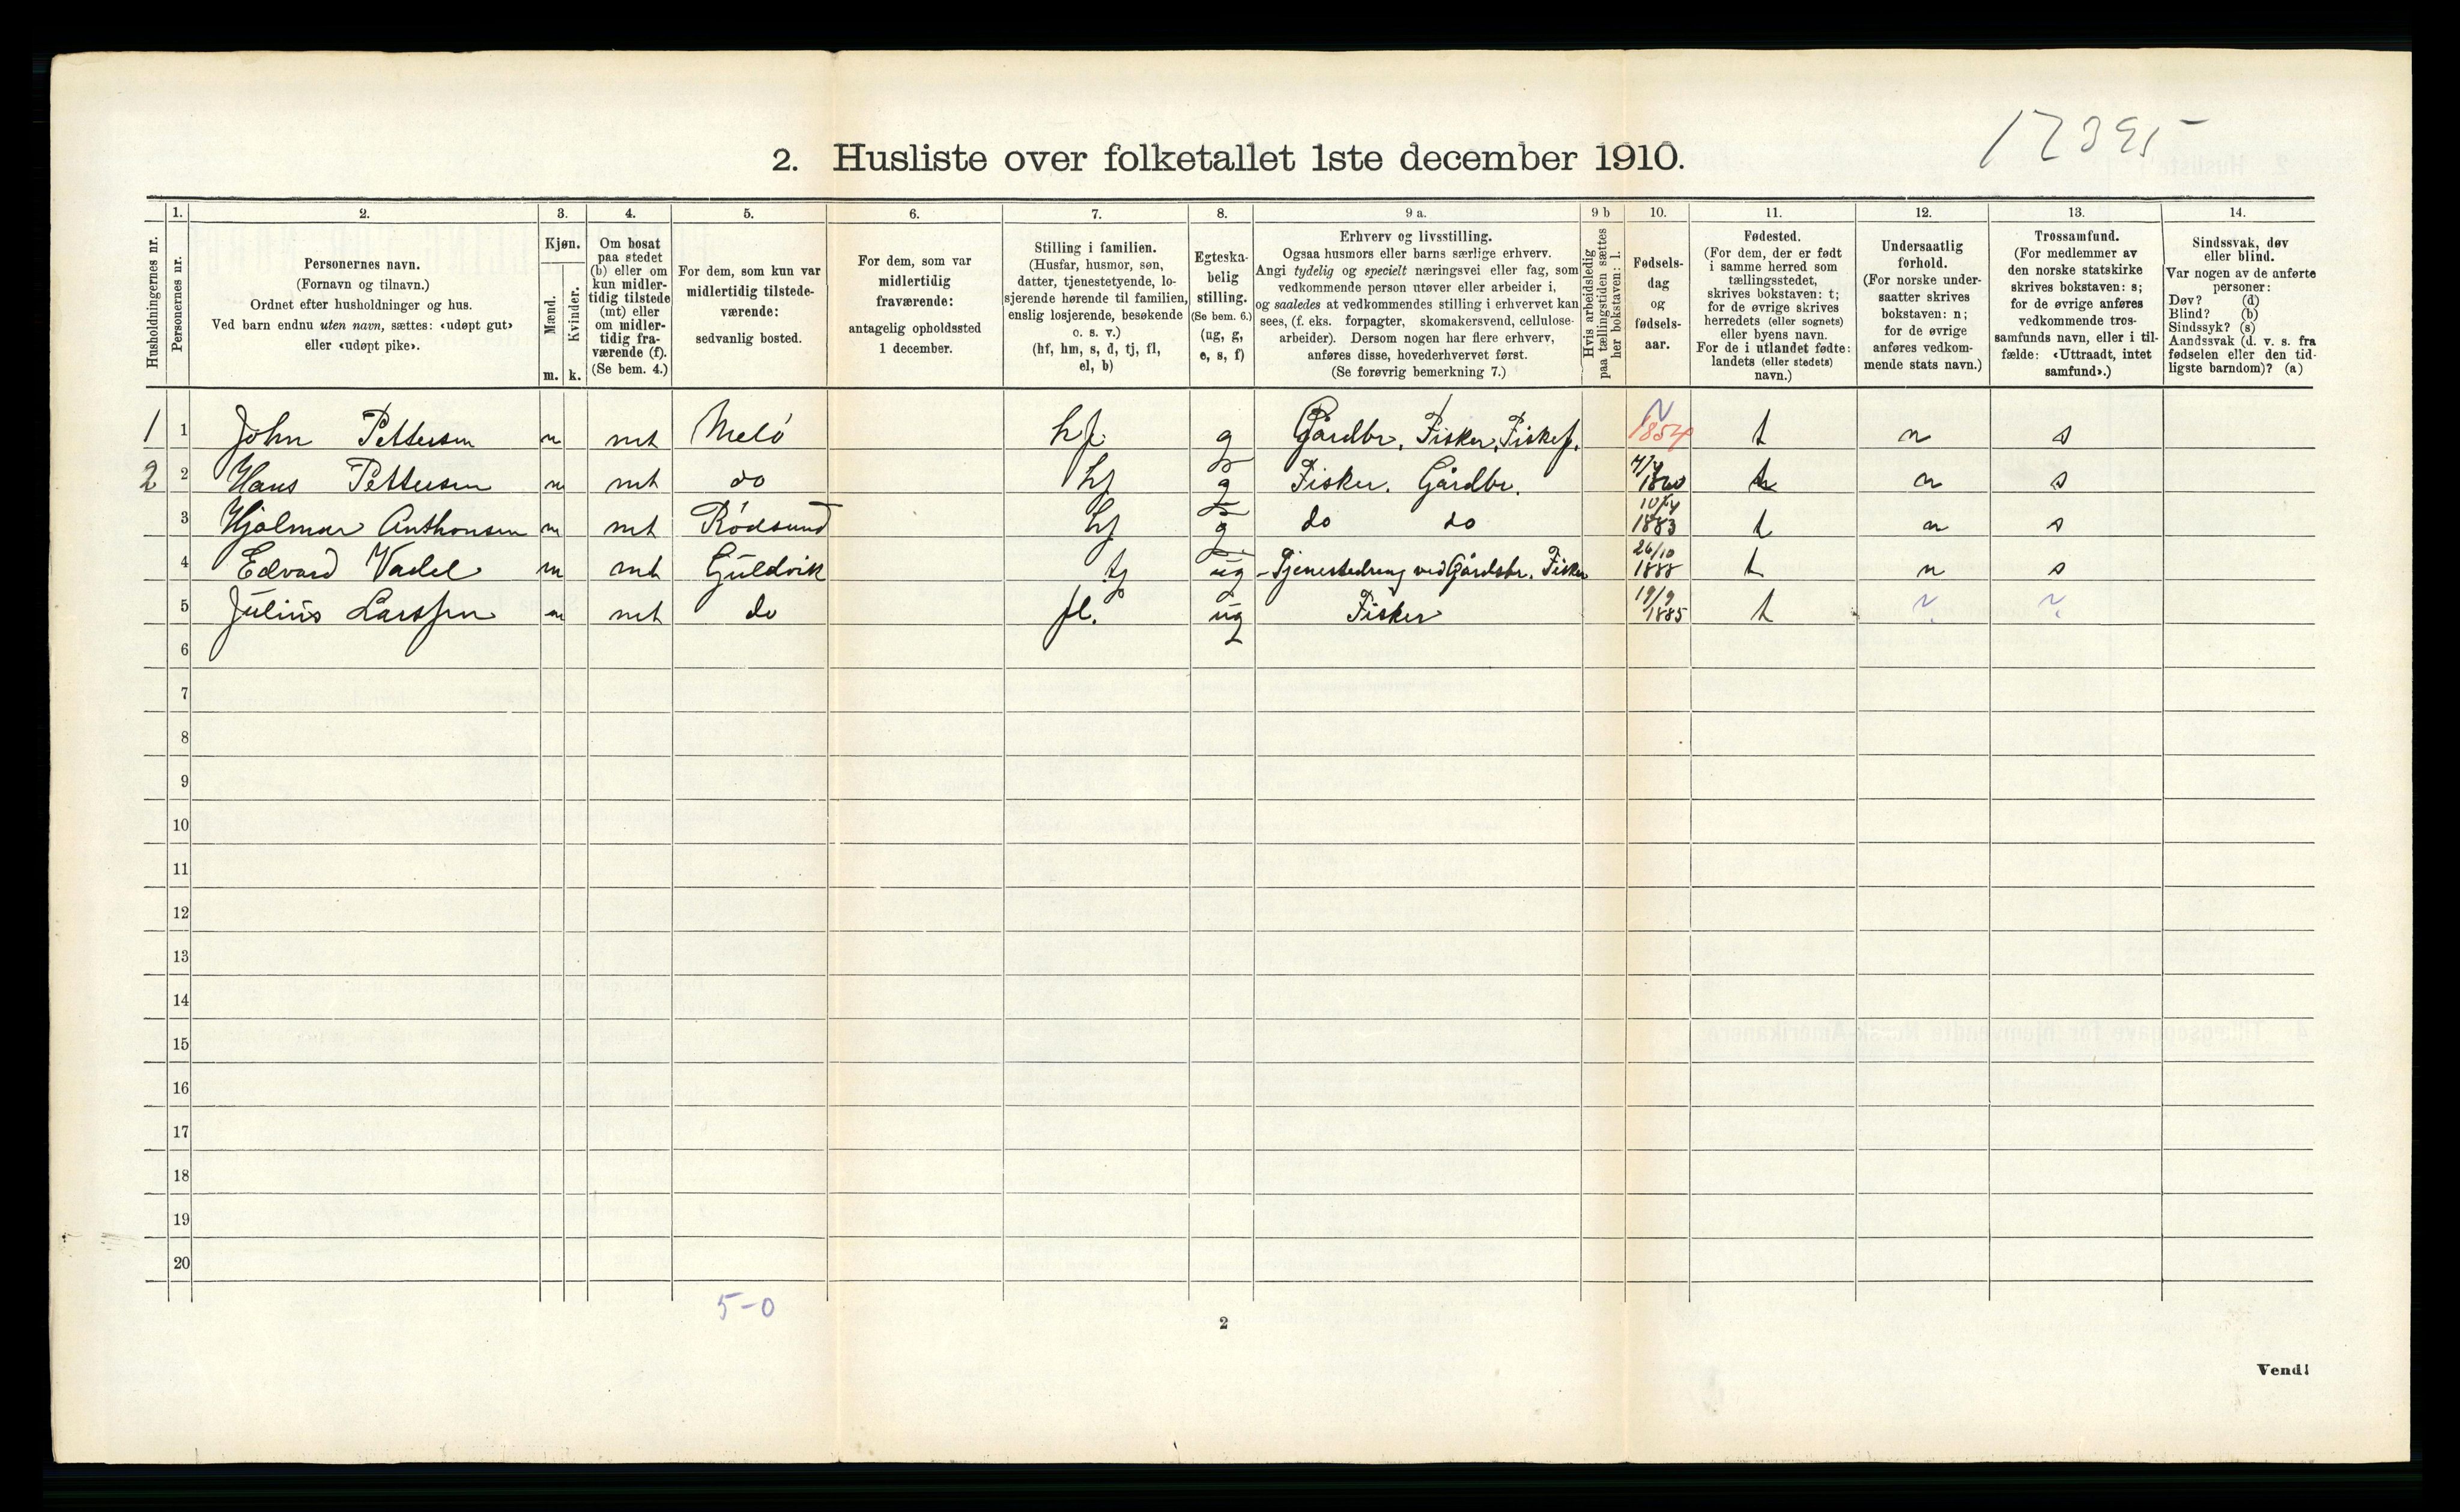 12395
2. Husliste over folketallet 1ste december 1910.
1. 2. 3. 4. 5. 6. 7. 8. 9 a. 9 b 10. 11. 12. 13. 14.
Husholdningernes nr.
Personernes nr.
Personernes navn.
(Fornavn og tilnavn.)
Ordnet efter husholdninger og hus.
Ved barn endnu uten navn, sættes: «udøpt gut»
eller «udøpt pike».
Kjøn.
Mænd.
Kvinder.
m. k.
Om bosat
paa stedet
(b) eller om
kun midler-
tidig tilstede
(mt) eller
om midler-
tidig fra-
værende (f).
(Se bem. 4.)
For dem, som kun var
midlertidig tilstede-
værende:
sedvanlig bosted.
For dem, som var
midlertidig
fraværende:
antagelig opholdssted
1 december.
Stilling i familien.
(Husfar, husmor, søn,
datter, tjenestetyende, lo-
sjerende hørende til familien,
enslig losjerende, besøkende
o. s. v.)
(hf, hm, s, d, tj, fl,
el, b)
Egteska-
belig
stilling.
(Se bem. 6.)
(ug, g,
e, s, f)
Erhverv og livsstilling.
Ogsaa husmors eller barns særlige erhverv.
Angi tydelig og specielt næringsvei eller fag, som
vedkommende person utøver eller arbeider i,
og saaledes at vedkommendes stilling i erhvervet kan
sees, (f. eks. forpagter, skomakersvend, cellulose-
arbeider). Dersom nogen har flere erhverv,
anføres disse, hovederhvervet først.
(Se forøvrig bemerkning 7.)
Hvis arbeidsledig
paa tællingstiden sættes
her bokstaven: l.
Fødsels-
dag
og
fødsels-
aar.
Fødested.
(For dem, der er født
i samme herred som
tællingsstedet,
skrives bokstaven: t;
for de øvrige skrives
herredets (eller sognets)
eller byens navn.
For de i utlandet fødte:
landets (eller stedets)
navn.)
Undersaatlig
forhold.
(For norske under-
saatter skrives
bokstaven: n;
for de øvrige
anføres vedkom-
mende stats navn.)
Trossamfund.
(For medlemmer av
den norske statskirke
skrives bokstaven: s;
for de øvrige anføres
vedkommende tros-
samfunds navn, eller i til-
fælde: «Uttraadt, intet
samfund».)
Sindssvak, døv
eller blind.
Var nogen av de anførte
personer:
Døv? (d)
Blind? (b)
Sindssyk? (s)
Aandssvak (d. v. s. fra
fødselen eller den tid-
ligste barndom)? (a)
1 1 John Pettersen m mt Melö hf. g Gårdbr. Fisker, Fiskef. 1854 t n s
2 2 Hans Pettersen m mt do hf g Fisker. Gårdbr. 1860 t n s
3 Hjalmar Anthonsen m mt Rödsund hf g do do 10/4 1883 t n s
4 Edvard Vadel m mt Guldvik tj ug Tjenestedreng ved Gårdsbr. Fisker 26/10 1888 t n s
5 Julius Larssen m mt do fl. ug Fisker 19/9 1885 t
6
7
8
9
10
11
12
13
14
15
16
17
18
19
20
5-0
2
Vend!